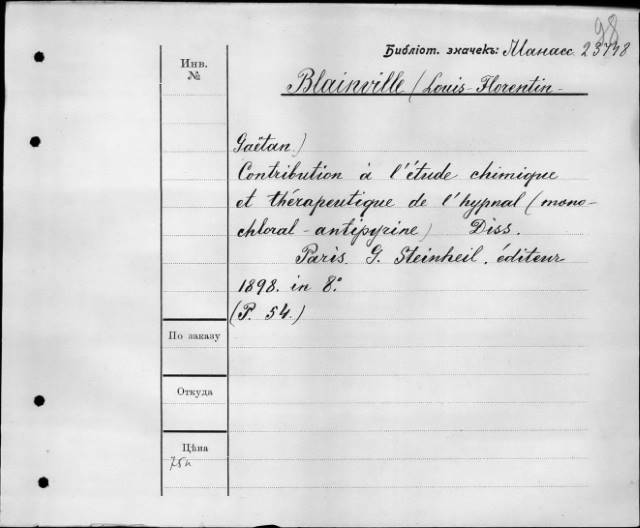 98
Библіот. значекъ: Манасс. 23778
Инв.
№
Blainville (Louis-Florentin-
Gaëtan.)
Contribution à l'étude chimique
et thérapeutique de l'hypnal (mono-
chloral-antipyrine) Diss.
Paris. G. Steinheil. éditeur
1898. in 8º
(P. 54.)
По заказу
Откуда
Цѣна
75к